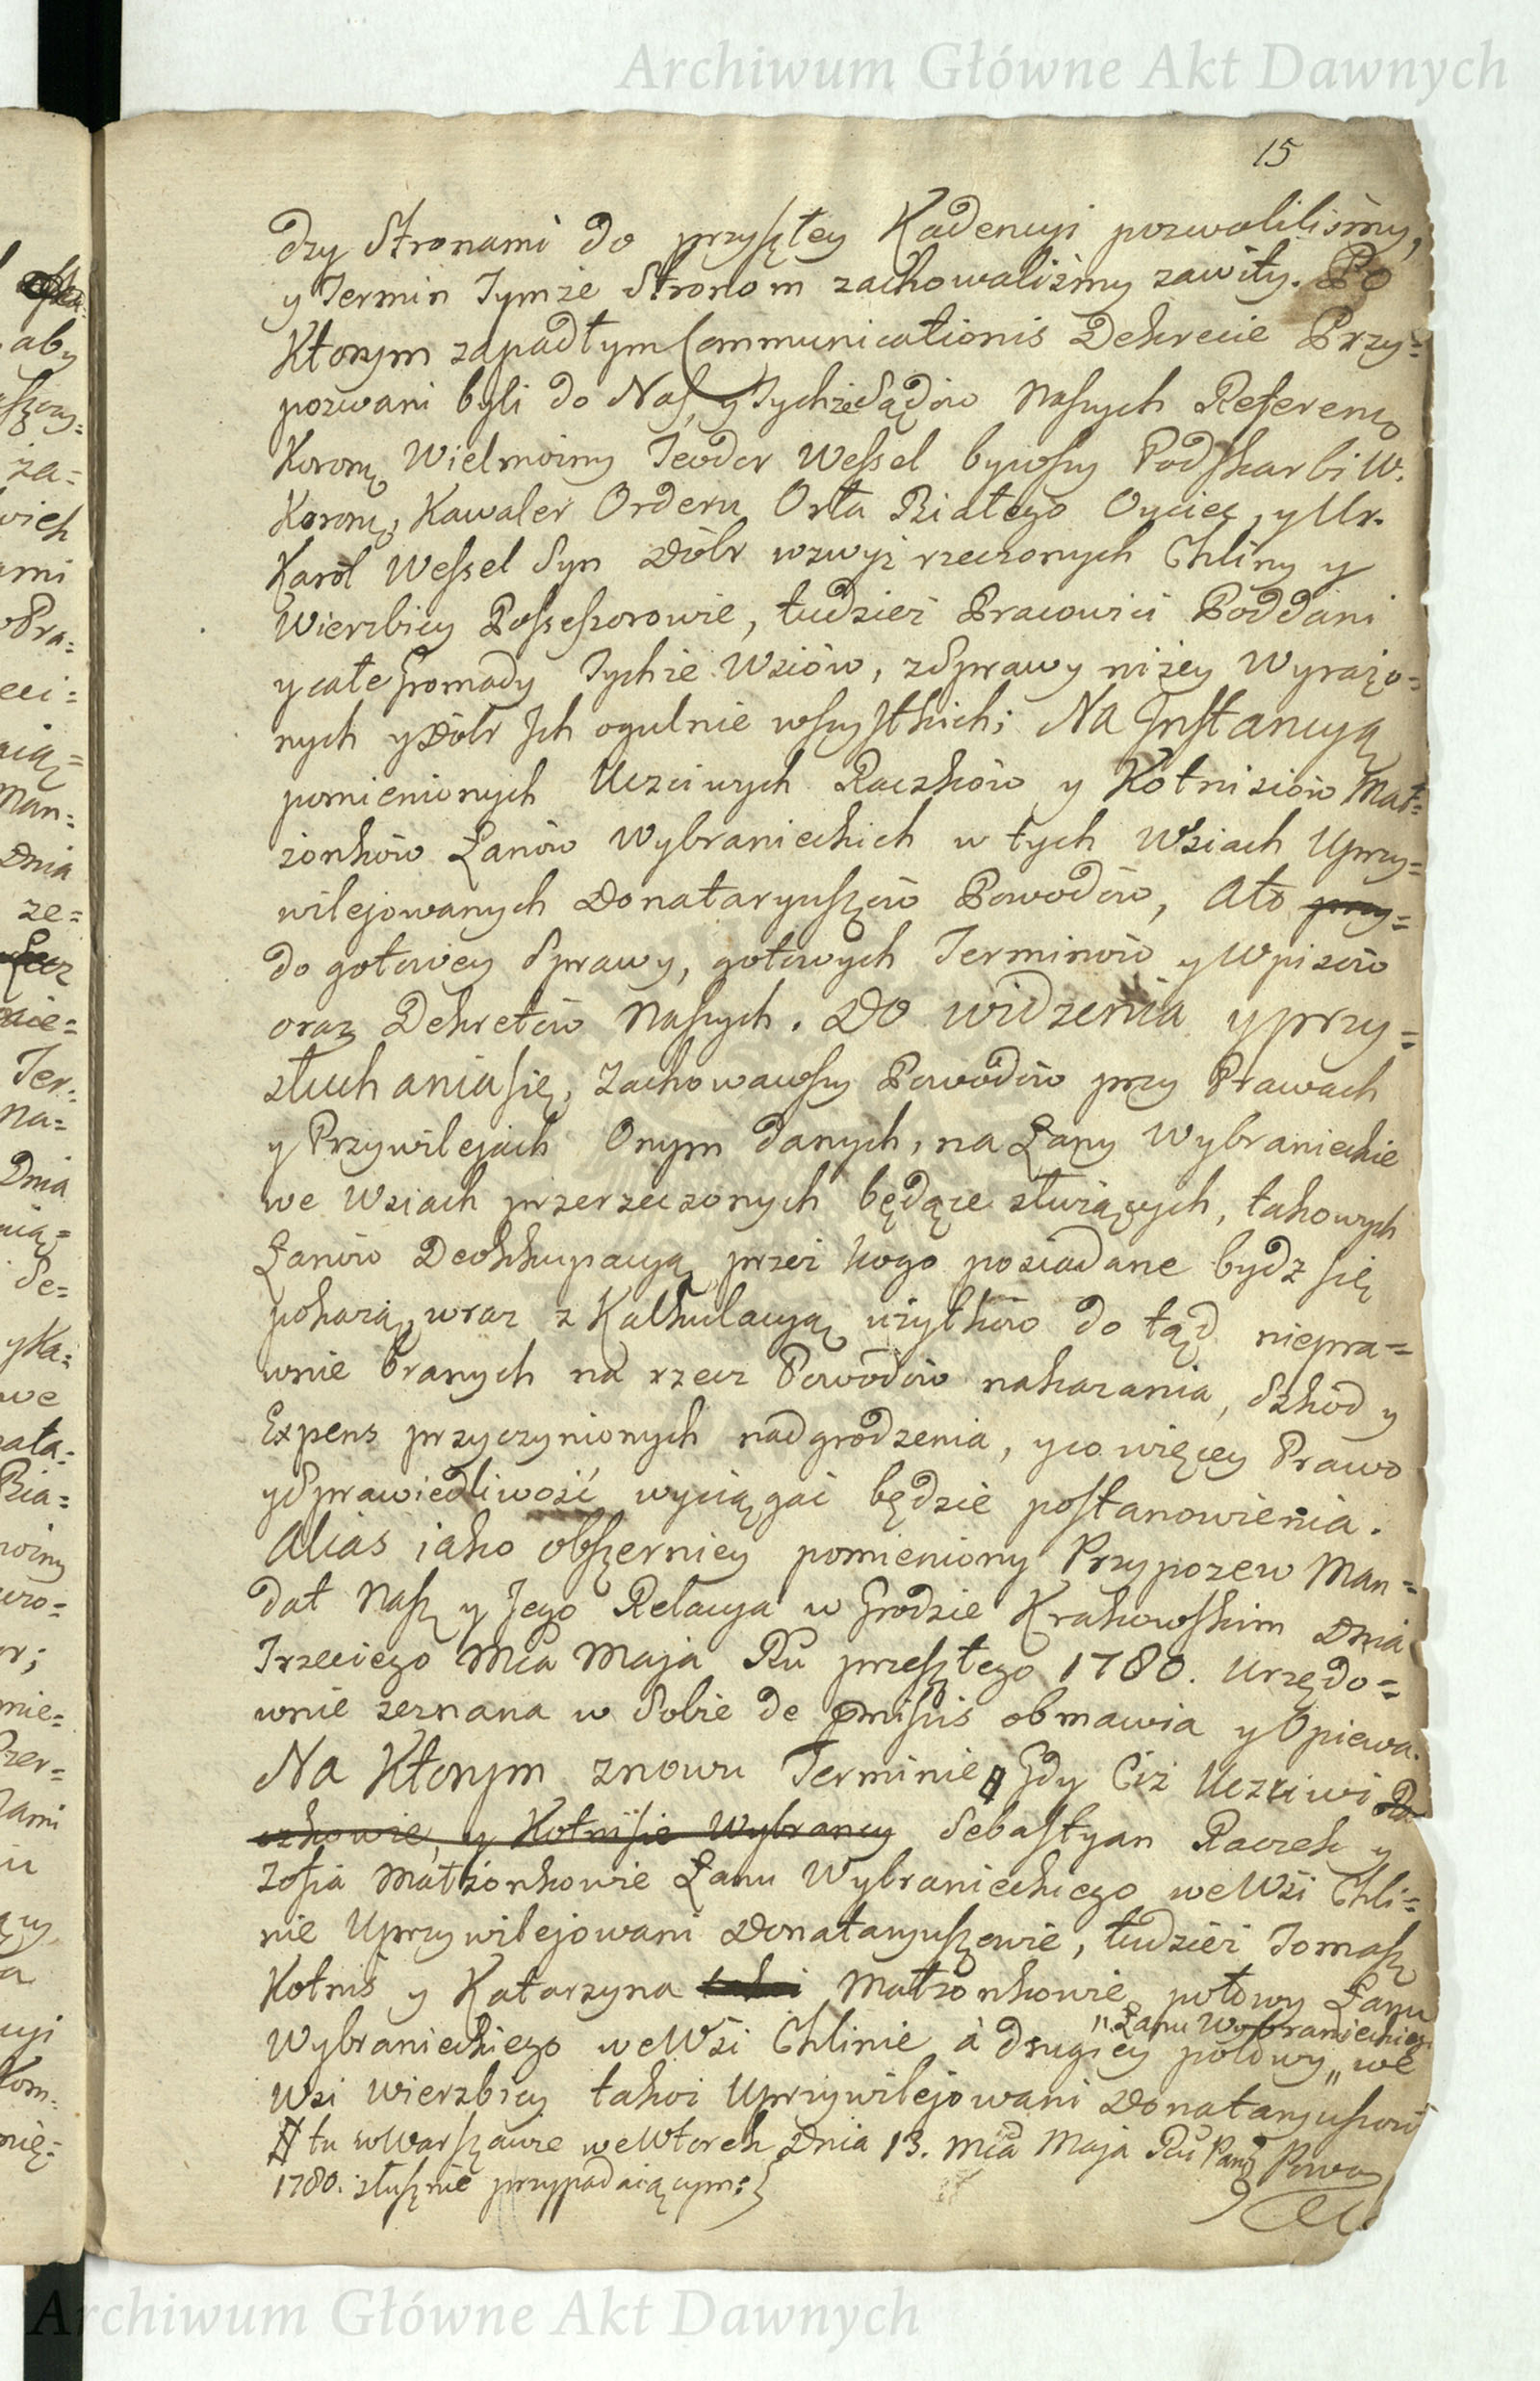 Archiwum Główne Akt Dawnych
15
dzy Stronami do przyszłey Kadencyi pozwoliliśmy,
y Termin Tymże Stronom zachowaliśmy zawity. Po
Ktorym zapadłym Communicationis Dekrecie Przy=
pozwani byli do Nas, y Tychże Sądów Naszych Referen.
Koron. Wielmożny Teodor Wessel bywszy Podskarbi W.
Koron, Kawaler Orderu Orła Białego Oyciec, y Ur.
Karol Wessel Syn Dóbr wzwyż rzeczonych Chliny y
Wierzbicy Possessorowie, tudzież Pracowici Poddani
y całe Gromady Tychże Wsiów, z Sprawy niżey Wyrażo=
nych y Dóbr Ich ogulnie wszystkich; Na Instancyą
pomienionych Uczciwych Raczków y Kotnisiów Mał=
żonków Łanów Wybranieckich w tych Wsiach Uprzy=
wilejowanych Donataryuszów Powodów, Ato przy=
do gotowey Sprawy, gotowych Terminów y Wpisów
oraz Dekretów Naszych. Do widzenia y przy=
słuchania się, Zachowawszy Powodów przy Prawach
y Przywilejach Onym danych, na Łany Wybranieckie
we Wsiach przerzeczonych będące służących, takowych
Łanów Deokkupacyą przez kogo posiadane bydz się
pokażą, wraz z Kalkulacyą użytków do tąd niepra=
wnie branych na rzecz Powodów nakazania, Szkod y
Expens przyczynionych nadgrodzenia, y co więcey Prawo
y Sprawiedliwość wyciągać będzie postanowienia.
Alias iako obszerniey pomieniony Przypozew Man=
dat Nasz y Jego Relacya w Grodzie Krakowskim Dnia
Trzeciego Mca Maja Ru przeszłego 1780. Urzędo=
wnie zeznana w Sobie de pmissis obmawia y Opiewa.
Na Ktorym znowu Terminie # Gdy Ciż Uczciwi Ra
czkowie, y Kotnisie Wybrancy Sebastyan Raczek y
Zofia Małżonkowie Łanu Wybranieckiego we Wsi Chli=
nie Uprzywilejowani Donataryuszowie, tudzież Tomasz
Kotnis y Katarzyna takoż Małżonkowie połowy Łanu
"Łanu Wybranieckiego
Wybranieckiego we Wsi Chlinie a drugiey połowy " we
Wsi Wierzbicy takoż Uprzywilejowani Donataryuszowie
# tu w Warszawie we Wtorek Dnia 13. Mca Maja Ru Pań. Powo
1780. słusznie przypadaiącym:
Archiwum Główne Akt Dawnych